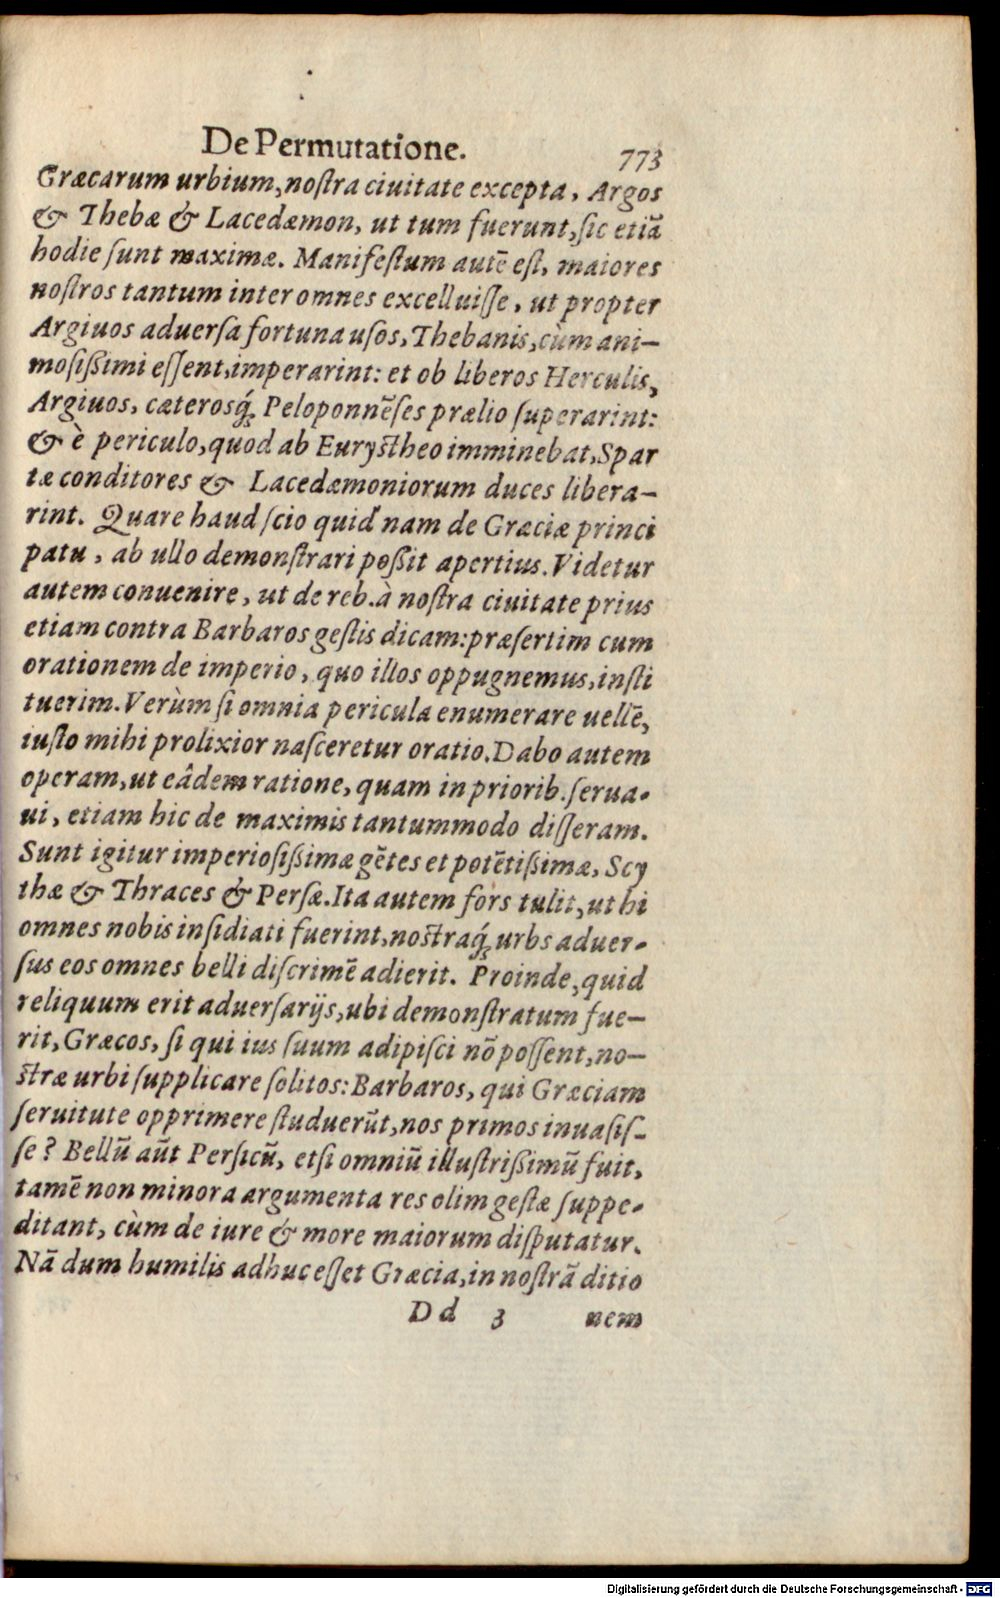 De Permutatione.
773
Græcarum urbium, noſtra ciuitate excepta, Argos
& Thebæ & Lacedæmon, ut tum fuerunt, ſic etiã
hodie ſunt maximæ. Manifeſtum autẽ eſt, maiores
noſtros tantum inter omnes excelluiſſe, ut propter
Argiuos aduerſa fortuna uſos, Thebanis, cùm ani-
moſiſſimi eſſent, imperarint: et ob liberos Herculis,
Argiuos, cæterosq́; Peloponnẽſes prælio ſuperarint:
& è periculo, quod ab Euryſtheo imminebat, Spar
tæ conditores & Lacedæmoniorum duces libera-
rint. Quare haud ſcio quid nam de Græciæ princi
patu, ab ullo demonſtrari poßit apertius. Videtur
autem conuenire, ut de reb. à noſtra ciuitate prius
etiam contra Barbaros geſtis dicam: præſertim cum
orationem de imperio, quo illos oppugnemus, inſti
tuerim. Verùm ſi omnia pericula enumerare uellẽ,
iuſto mihi prolixior naſceretur oratio. Dabo autem
operam, ut eâdem ratione, quam in priorib. ſerua-
ui, etiam hic de maximis tantummodo diſſeram.
Sunt igitur imperioſißimæ gẽtes et potẽtißimæ, Scy
thæ & Thraces & Perſæ. Ita autem fors tulit, ut hi
omnes nobis inſidiati fuerint, noſtraq́; urbs aduer-
ſus eos omnes belli diſcrimẽ adierit. Proinde, quid
reliquum erit aduerſarijs, ubi demonſtratum fue-
rit, Græcos, ſi qui ius ſuum adipiſci nõ poſſent, no-
ſtræ urbi ſupplicare ſolitos: Barbaros, qui Græciam
ſeruitute opprimere ſtuduerũt, nos primos inuaſiſ-
ſe? Bellũ aũt Perſicũ, etſi omniũ illuſtrißimũ fuit,
tamẽ non minora argumenta res olim geſtæ ſuppe-
ditant, cùm de iure & more maiorum diſputatur.
Nã dum humilis adhuc eſſet Græcia, in noſtrã ditio
D d 3 nem
Digitalisierung gefördert durch die Deutsche Forschungsgemeinschaft - DFG